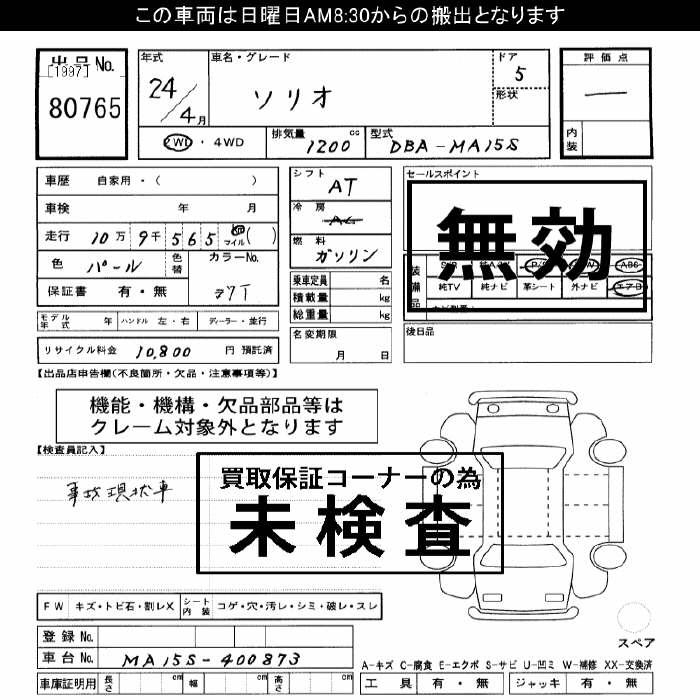 この車両は日曜日AM8:30からの搬出となります
出品No.
[1997]
80765
年式
24/4月
車名・グレード
ソリオ
ドア
5
形状
評価点
内装
2WD・4WD
排気量 1200 cc
型式 DBA-MA15S
車歴 自家用・( )
車検 年 月
走行 10万9千565 マイル( )
色 パール
色替
カラーNo.
保証書 有・無
シフト
AT
冷房
AC
燃料
ガソリン
乗車定員 名
積載量 kg
総重量 kg
セールスポイント
無効
装備品
純TV 純ナビ 革シート 外ナビ エアB
モデル年式 年 ハンドル 左・右 ディーラー・並行
名変期限
月 日
後日品
リサイクル料金 10,800 円 預託済
【出品店申告欄(不良箇所・欠品・注意事項等)】
機能・機構・欠品部品等は
クレーム対象外となります
【検査員記入】
買取保証コーナーの為
未検査
事故現状車
FW キズ・トビ石・割レX シート内装 コゲ・穴・汚レ・シミ・破レ・スレ
登録No.
車台No. MA15S-400873
スペア
A-キズ C-腐食 E-エクボ S-サビ U-凹ミ W-補修 XX-交換済
車庫証明用 長さ cm 幅 cm 高さ cm
工具 有・無 ジャッキ 有・無